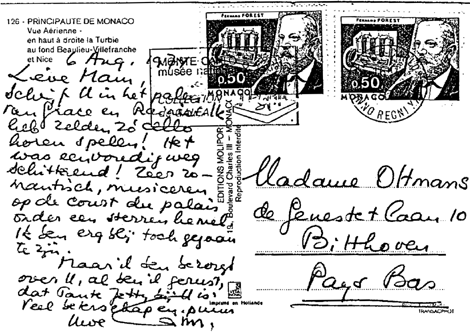 126 - PRINCIPAUTE DE MONACO
Vue Aérienne -
en haut à droite la Turbie
au fond Beaulieu-Villefranche
et Nice
6 Aug.
Lieve Mam,
Schrijf U in het paleis
van Grace en Ik
heb zelden zo cello
horen spelen! Het
was eenvoudig weg
schitterend! Zeer ro-
mantisch, musiceren
op de court du palais
onder een sterren hemel
Ik ben erg blij toch gegaan
te zijn.
Maar ik ben bezorgd
over U, al ben ik gerust,
dat Tante Jetty bij U is.
Veel beterschap en
Uwe
MONTE-C
musée na
COLLECTION
EDITIONS MOLIPOR
19, Boulevard Charles III - MONACO
Reproduction Interdite
FERNAND FOREST
0,50
MONACO
FERNAND FOREST
0,50
MONACO
ANNO REGNI
Madame Oltmans
de Genestet Laan 10
Bilthoven
Pays Bas
Imprimé en Hollande